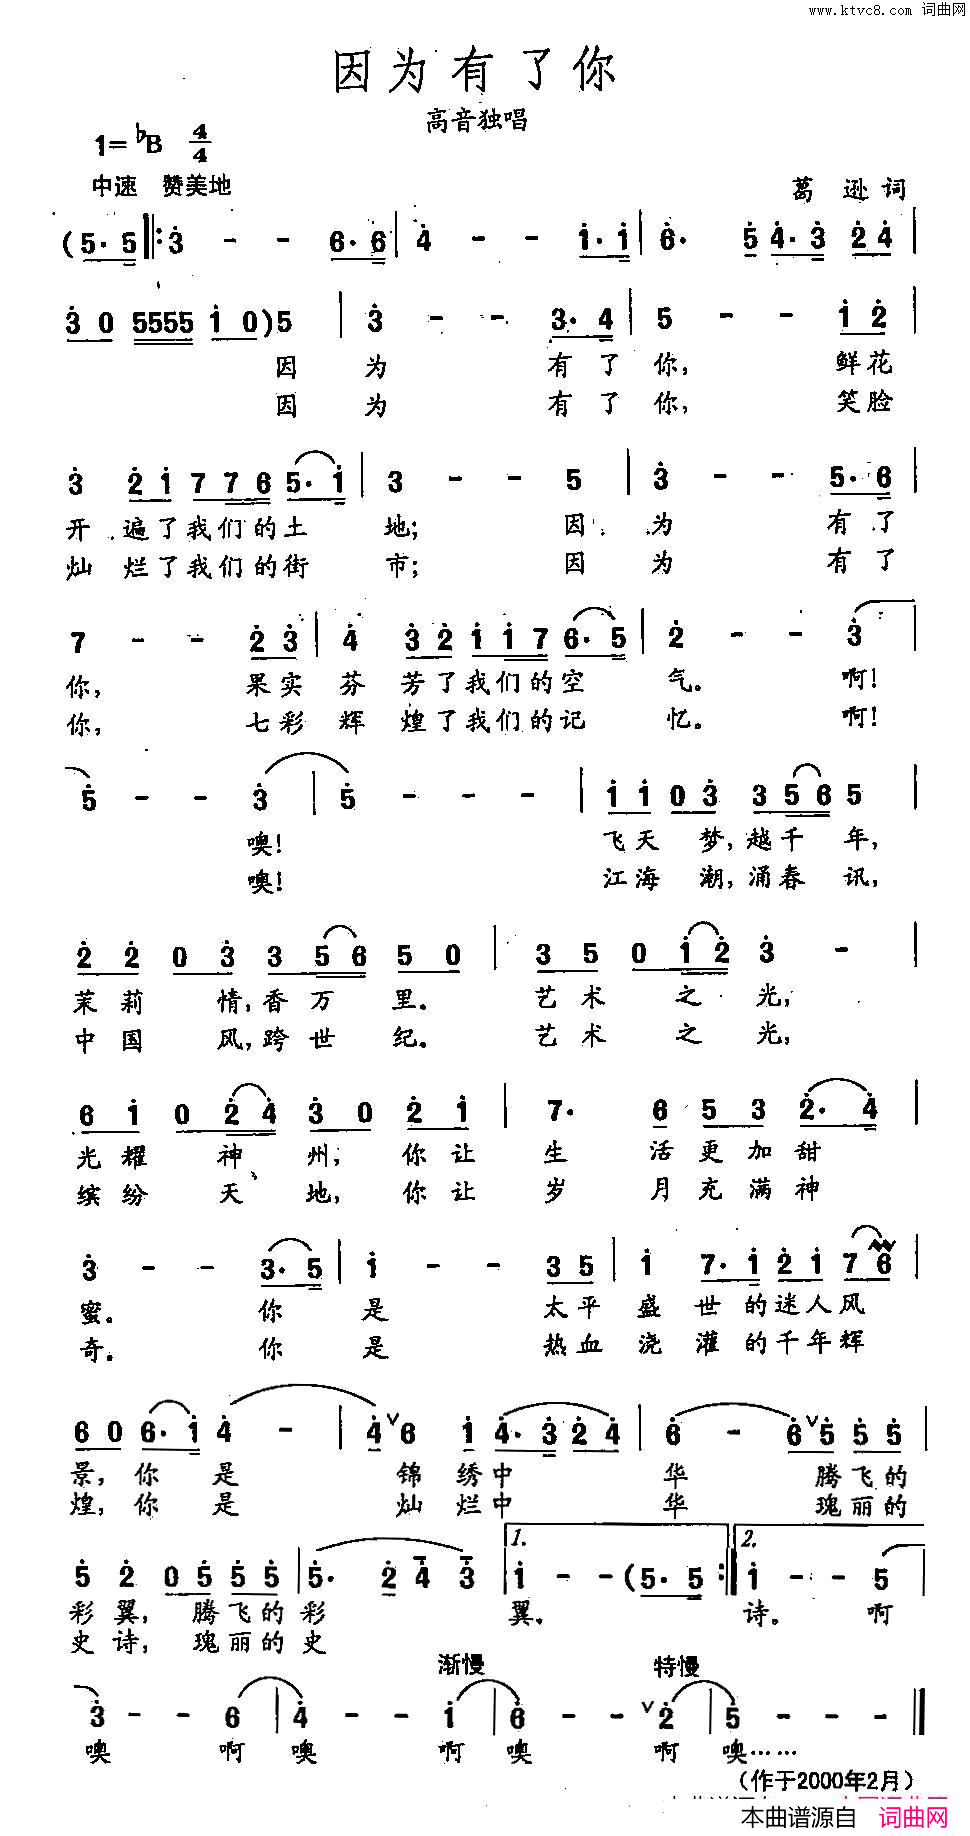 www.ktvc8.com 词曲网
因为有了你
高音独唱
1=♭B 4/4
中速 赞美地
葛逊词
(5·5 ‖: 3 - - 6·6 | 4 - - 1·1 | 6· 5 4·3 2 4 |
3 0 5555 1 0) 5 | 3 - - 3·4 | 5 - - 1 2 |
因 为 有 了 你, 鲜花
因 为 有 了 你, 笑脸
3 2 1 7 7 6 5·1 | 3 - - 5 | 3 - - 5·6 |
开 遍了我们的土 地; 因 为 有 了
灿 烂了我们的街 市; 因 为 有 了
7 - - 2 3 | 4 3 2 1 1 7 6·5 | 2 - - 3 |
你, 果实 芬 芳了我们的空 气。 啊!
你, 七彩 辉 煌了我们的记 忆。 啊!
5 - - 3 | 5 - - - | 1 1 0 3 3 5 6 5 |
噢! 飞天 梦,越千 年,
噢! 江海 潮,涌春 讯,
2 2 0 3 3 5 6 5 0 | 3 5 0 1 2 3 - |
茉莉 情,香万 里。 艺术 之 光,
中国 风,跨世 纪。 艺术 之 光,
6 1 0 2 4 3 0 2 1 | 7· 6 5 3 2·4 |
光耀 神 州, 你让 生 活更加甜
缤纷 天 地, 你让 岁 月充满神
3 - - 3·5 | 1 - - 3 5 | 1 7·1 2 1 7 6 |
蜜。 你 是 太平 盛 世的迷人风
奇。 你 是 热血 浇 灌的千年辉
6 0 6·1 4 - | 4 ∨ 6 1 4·3 2 4 | 6 - 6 ∨ 5 5 5 |
景,你 是 锦 绣中 华 腾飞的
煌,你 是 灿 烂中 华 瑰丽的
5 2 0 5 5 5 | 5· 2 4 3 | 1. 1 - - (5·5 :‖ 2. 1 - - 5 |
彩翼, 腾飞的彩 翼。 诗。 啊
史诗, 瑰丽的史
渐慢 特慢
3 - - 6 | 4 - - 1 | 6 - - ∨ 2 | 5 - - - ‖
噢 啊 噢 啊 噢 啊 噢……
(作于2000年2月)
本曲谱源自 词曲网